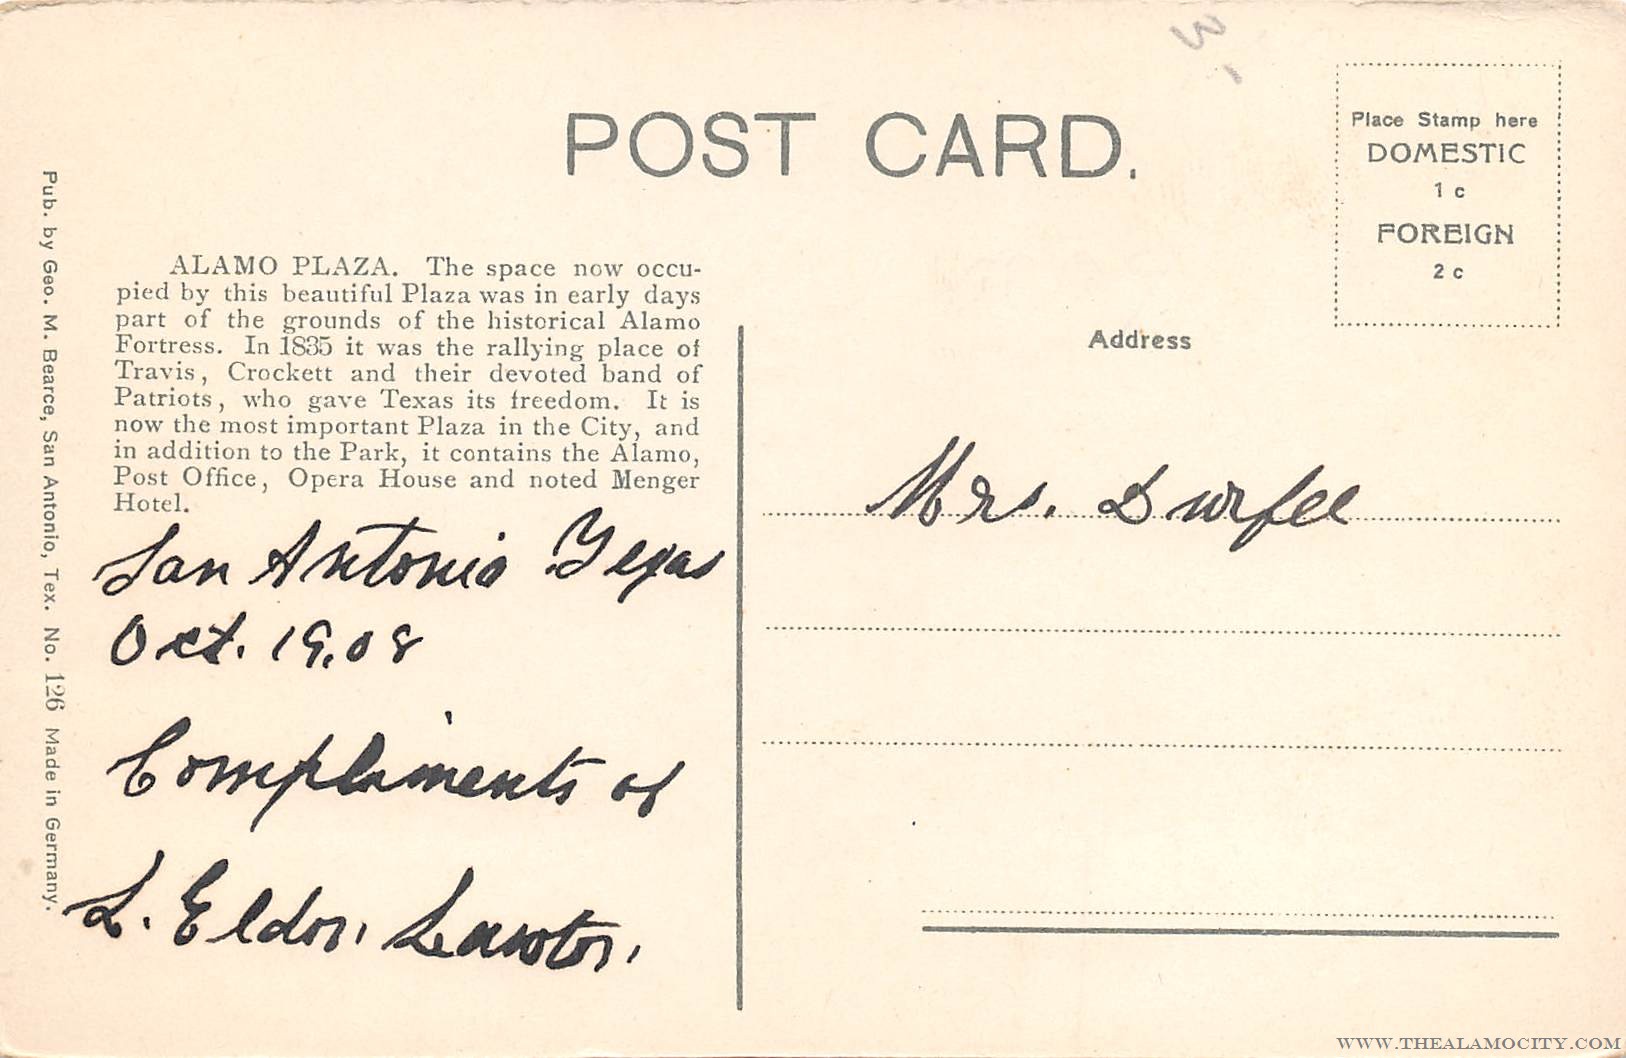 POST CARD.
Place Stamp here
DOMESTIC
1 c
FOREIGN
2 c
ALAMO PLAZA. The space now occu-
pied by this beautiful Plaza was in early days
part of the grounds of the historical Alamo
Fortress. In 1835 it was the rallying place of
Travis, Crockett and their devoted band of
Patriots, who gave Texas its freedom. It is
now the most important Plaza in the City, and
in addition to the Park, it contains the Alamo,
Post Office, Opera House and noted Menger
Hotel.
San Antonio Texas
Oct. 19.08
Compliments of
L. Eldon Lawton.
Address
Mrs. Durfee
Pub. by Geo. M. Bearce, San Antonio, Tex. No. 126 Made in Germany.
WWW.THEALAMOCITY.COM